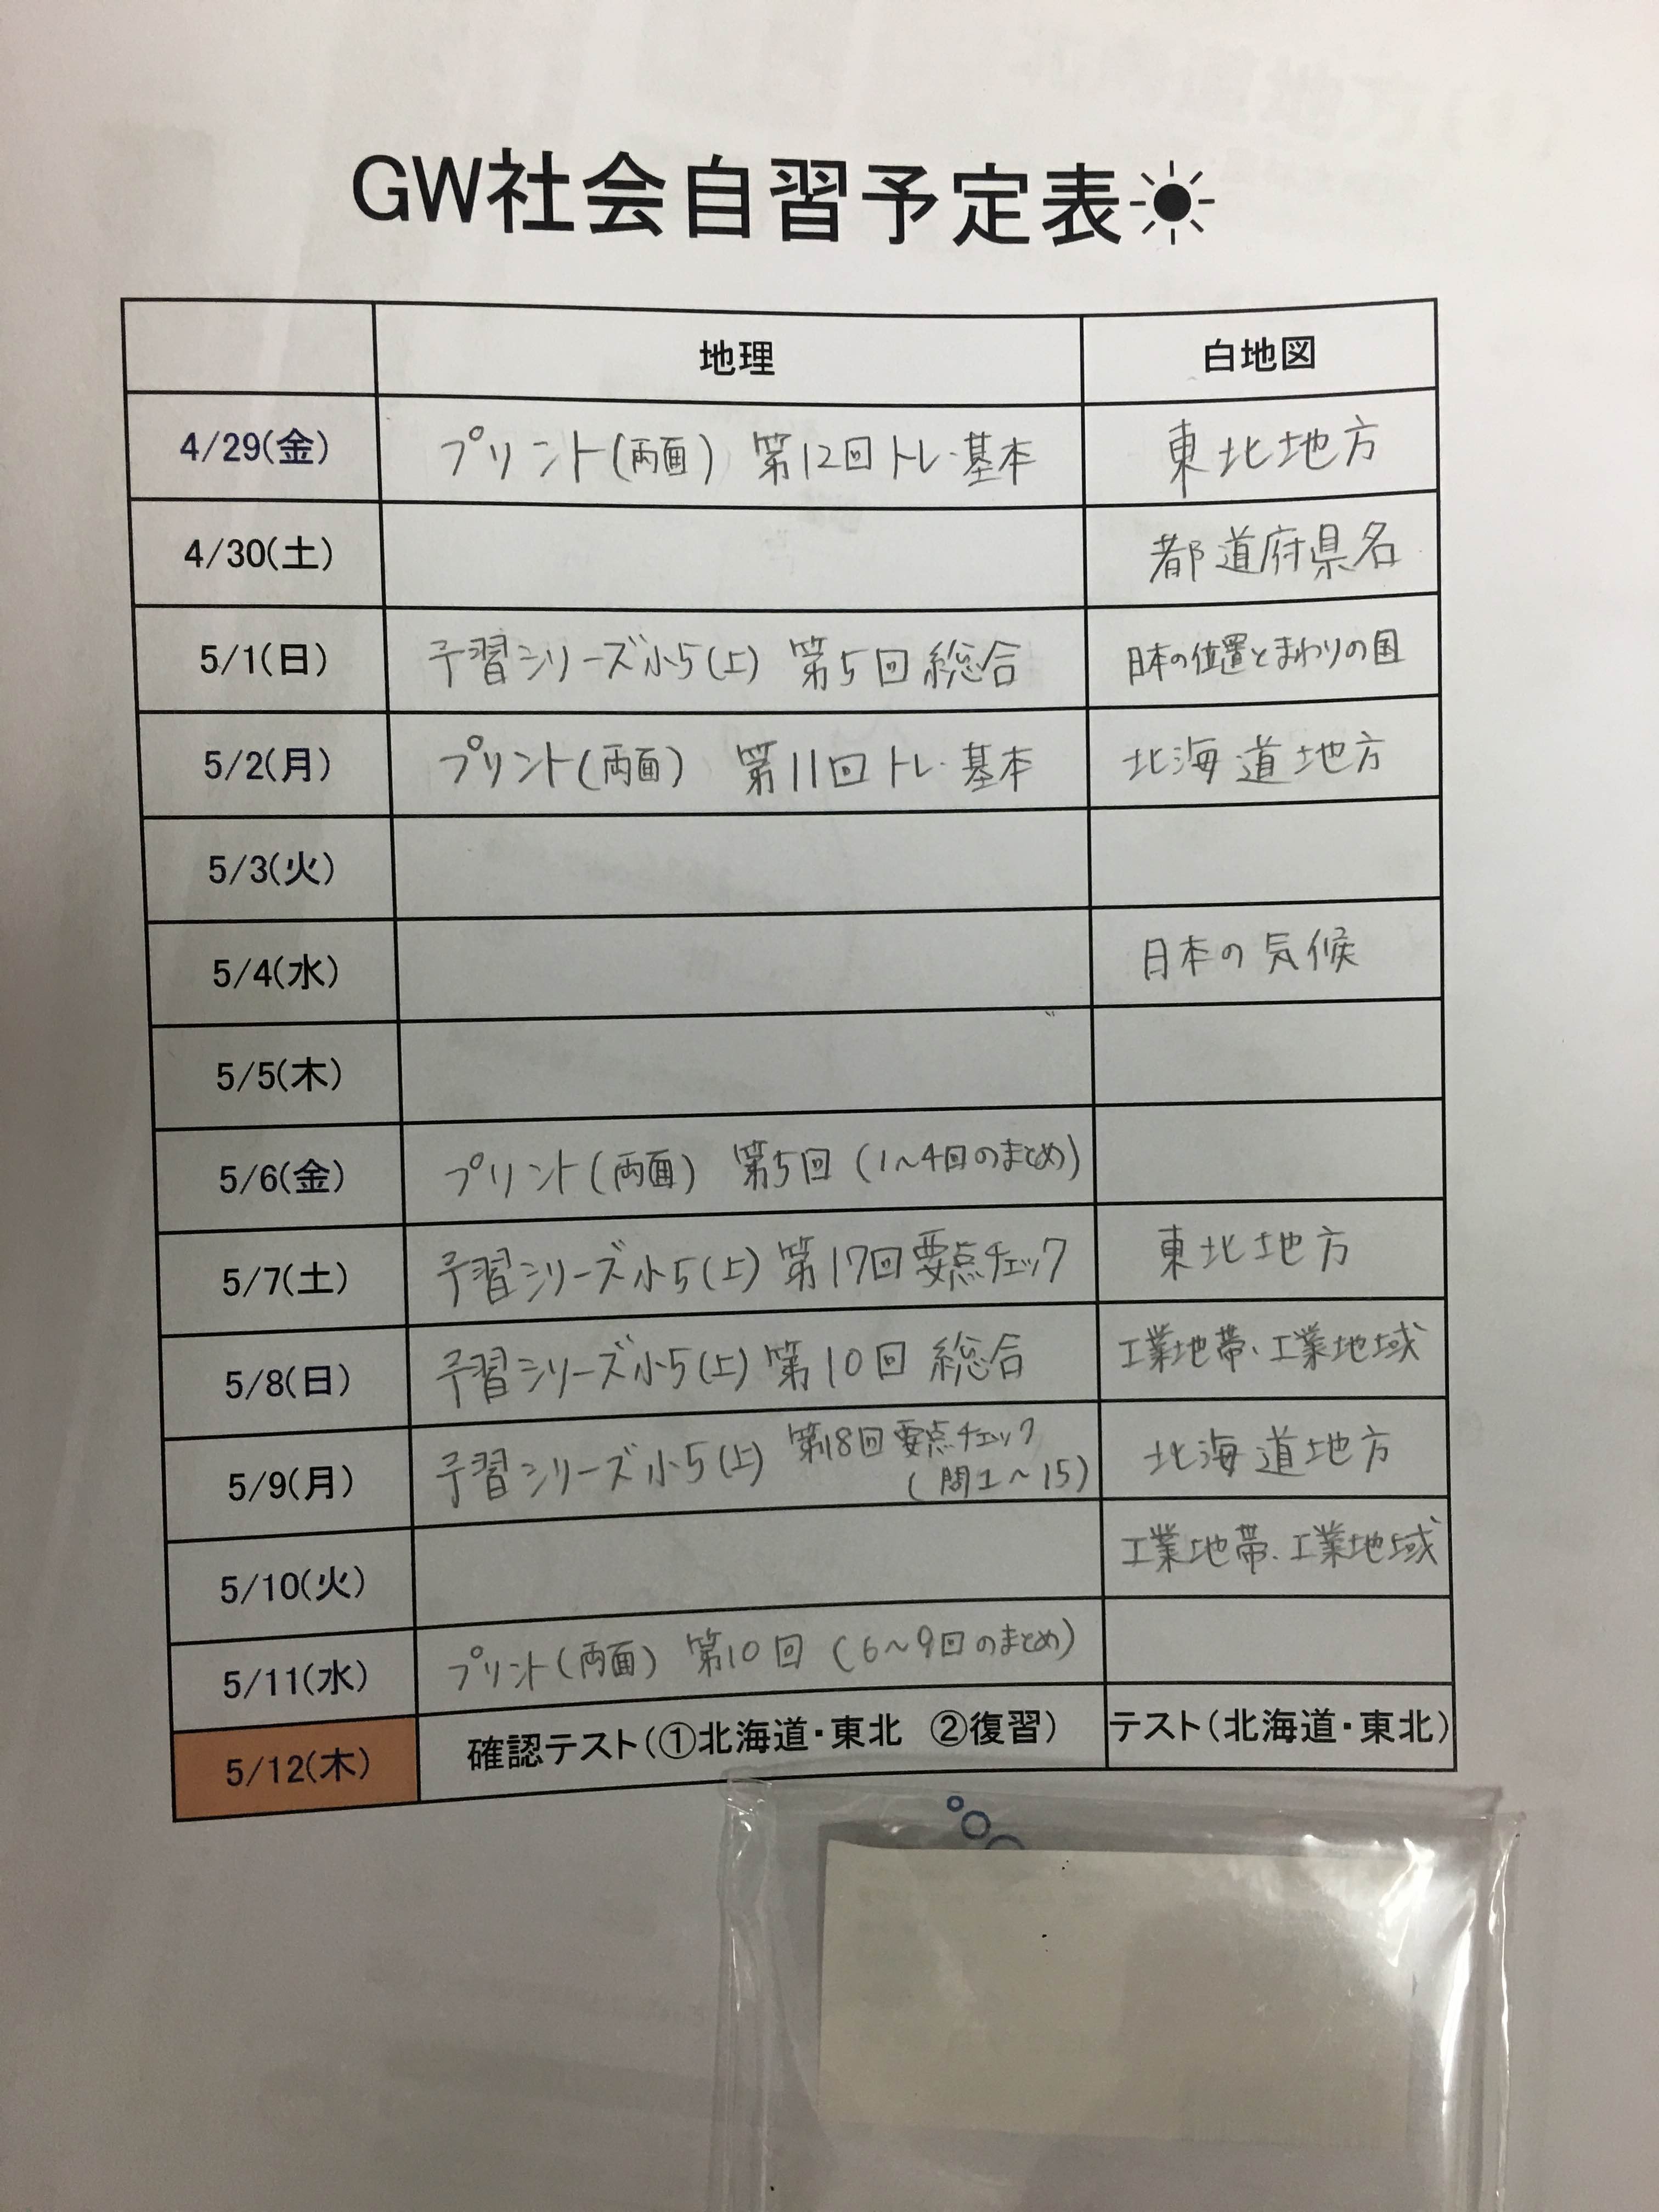 GW社会自習予定表☀
地理 白地図
4/29(金) プリント(両面) 第12回 トレ・基本 東北地方
4/30(土) 都道府県名
5/1(日) 予習シリーズ小5(上) 第5回 総合 日本の位置とまわりの国
5/2(月) プリント(両面) 第11回 トレ・基本 北海道地方
5/3(火)
5/4(水) 日本の気候
5/5(木)
5/6(金) プリント(両面) 第5回 (1〜4回のまとめ)
5/7(土) 予習シリーズ小5(上) 第17回 要点チェック 東北地方
5/8(日) 予習シリーズ小5(上) 第10回 総合 工業地帯、工業地域
5/9(月) 予習シリーズ小5(上) 第18回 要点チェック 北海道地方
(問1〜15)
5/10(火) 工業地帯、工業地域
5/11(水) プリント(両面) 第10回 (6〜9回のまとめ)
5/12(木) 確認テスト(①北海道・東北 ②復習) テスト(北海道・東北)